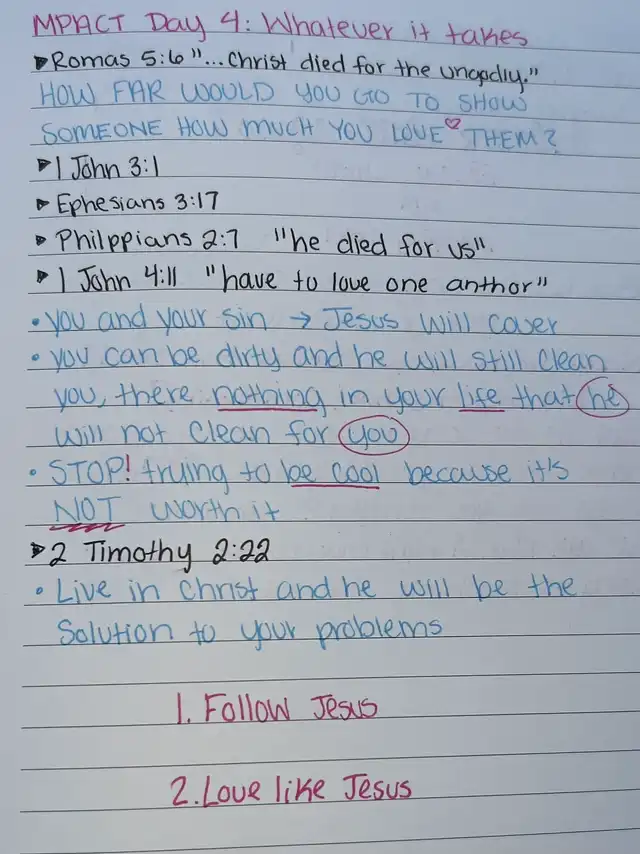 MPACT Day 4: Whatever it takes
▸Romas 5:6 "...Christ died for the ungodly."
HOW FAR WOULD YOU GO TO SHOW
SOMEONE HOW MUCH YOU LOVE♡ THEM?
▸1 John 3:1
▸Ephesians 3:17
▸Philppians 2:7 "he died for us"
▸1 John 4:11 "have to love one anthor"
•you and your sin → Jesus will cover
•you can be dirty and he will still clean
you, there nothing in your life that he
will not clean for you
•STOP! trying to be cool because it's
NOT worth it
▸2 Timothy 2:22
•Live in christ and he will be the
Solution to your problems
1. Follow Jesus
2. Love like Jesus